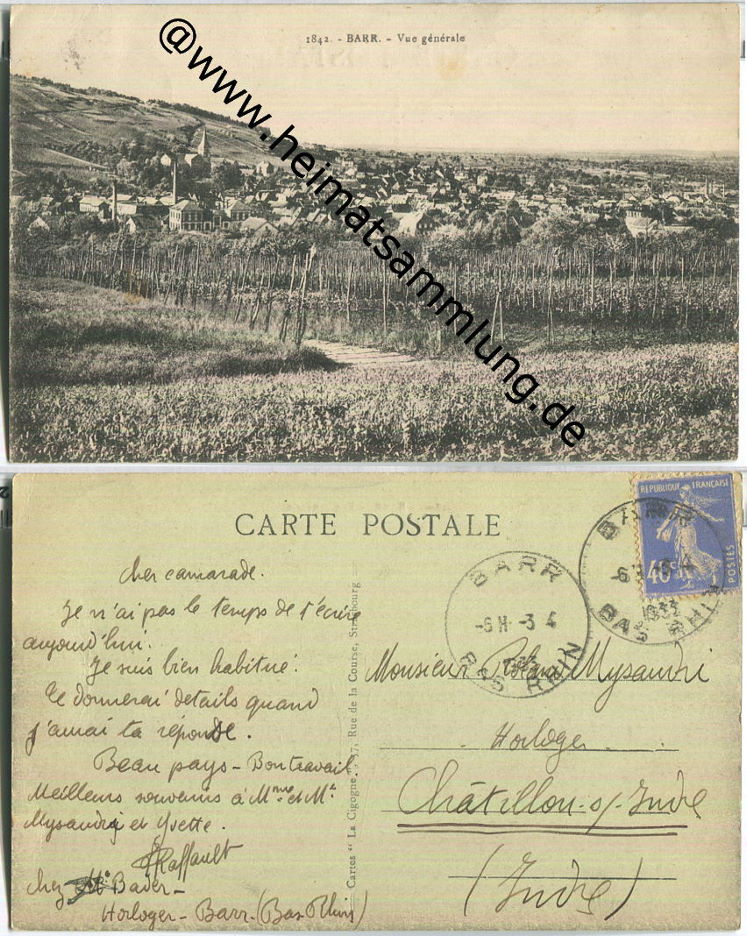 1842. - BARR. - Vue générale
@www.heimatsammlung.de
CARTE POSTALE
cher camarade.
Je n'ai pas le temps de t'écrire
aujourd'hui.
Je suis bien habitué.
Te donnerai détails quand
j'aurai ta réponse.
Beau pays - Bon travail
Meilleurs souvenirs à Mme et Mr
Mysandri et Yvette.
Raffault
chez Mr Bader -
Horloger - Barr. (Bas Rhin)
Cartes "La Cigogne", 37, Rue de la Course, Strasbourg
REPUBLIQUE FRANÇAISE
40c
POSTES
BARR
1933
BAS RHIN
BARR
-6 H -3 4
BAS RHIN
Monsieur Mysandri
Horloger
Châtillon s/ Indre
(Indre)